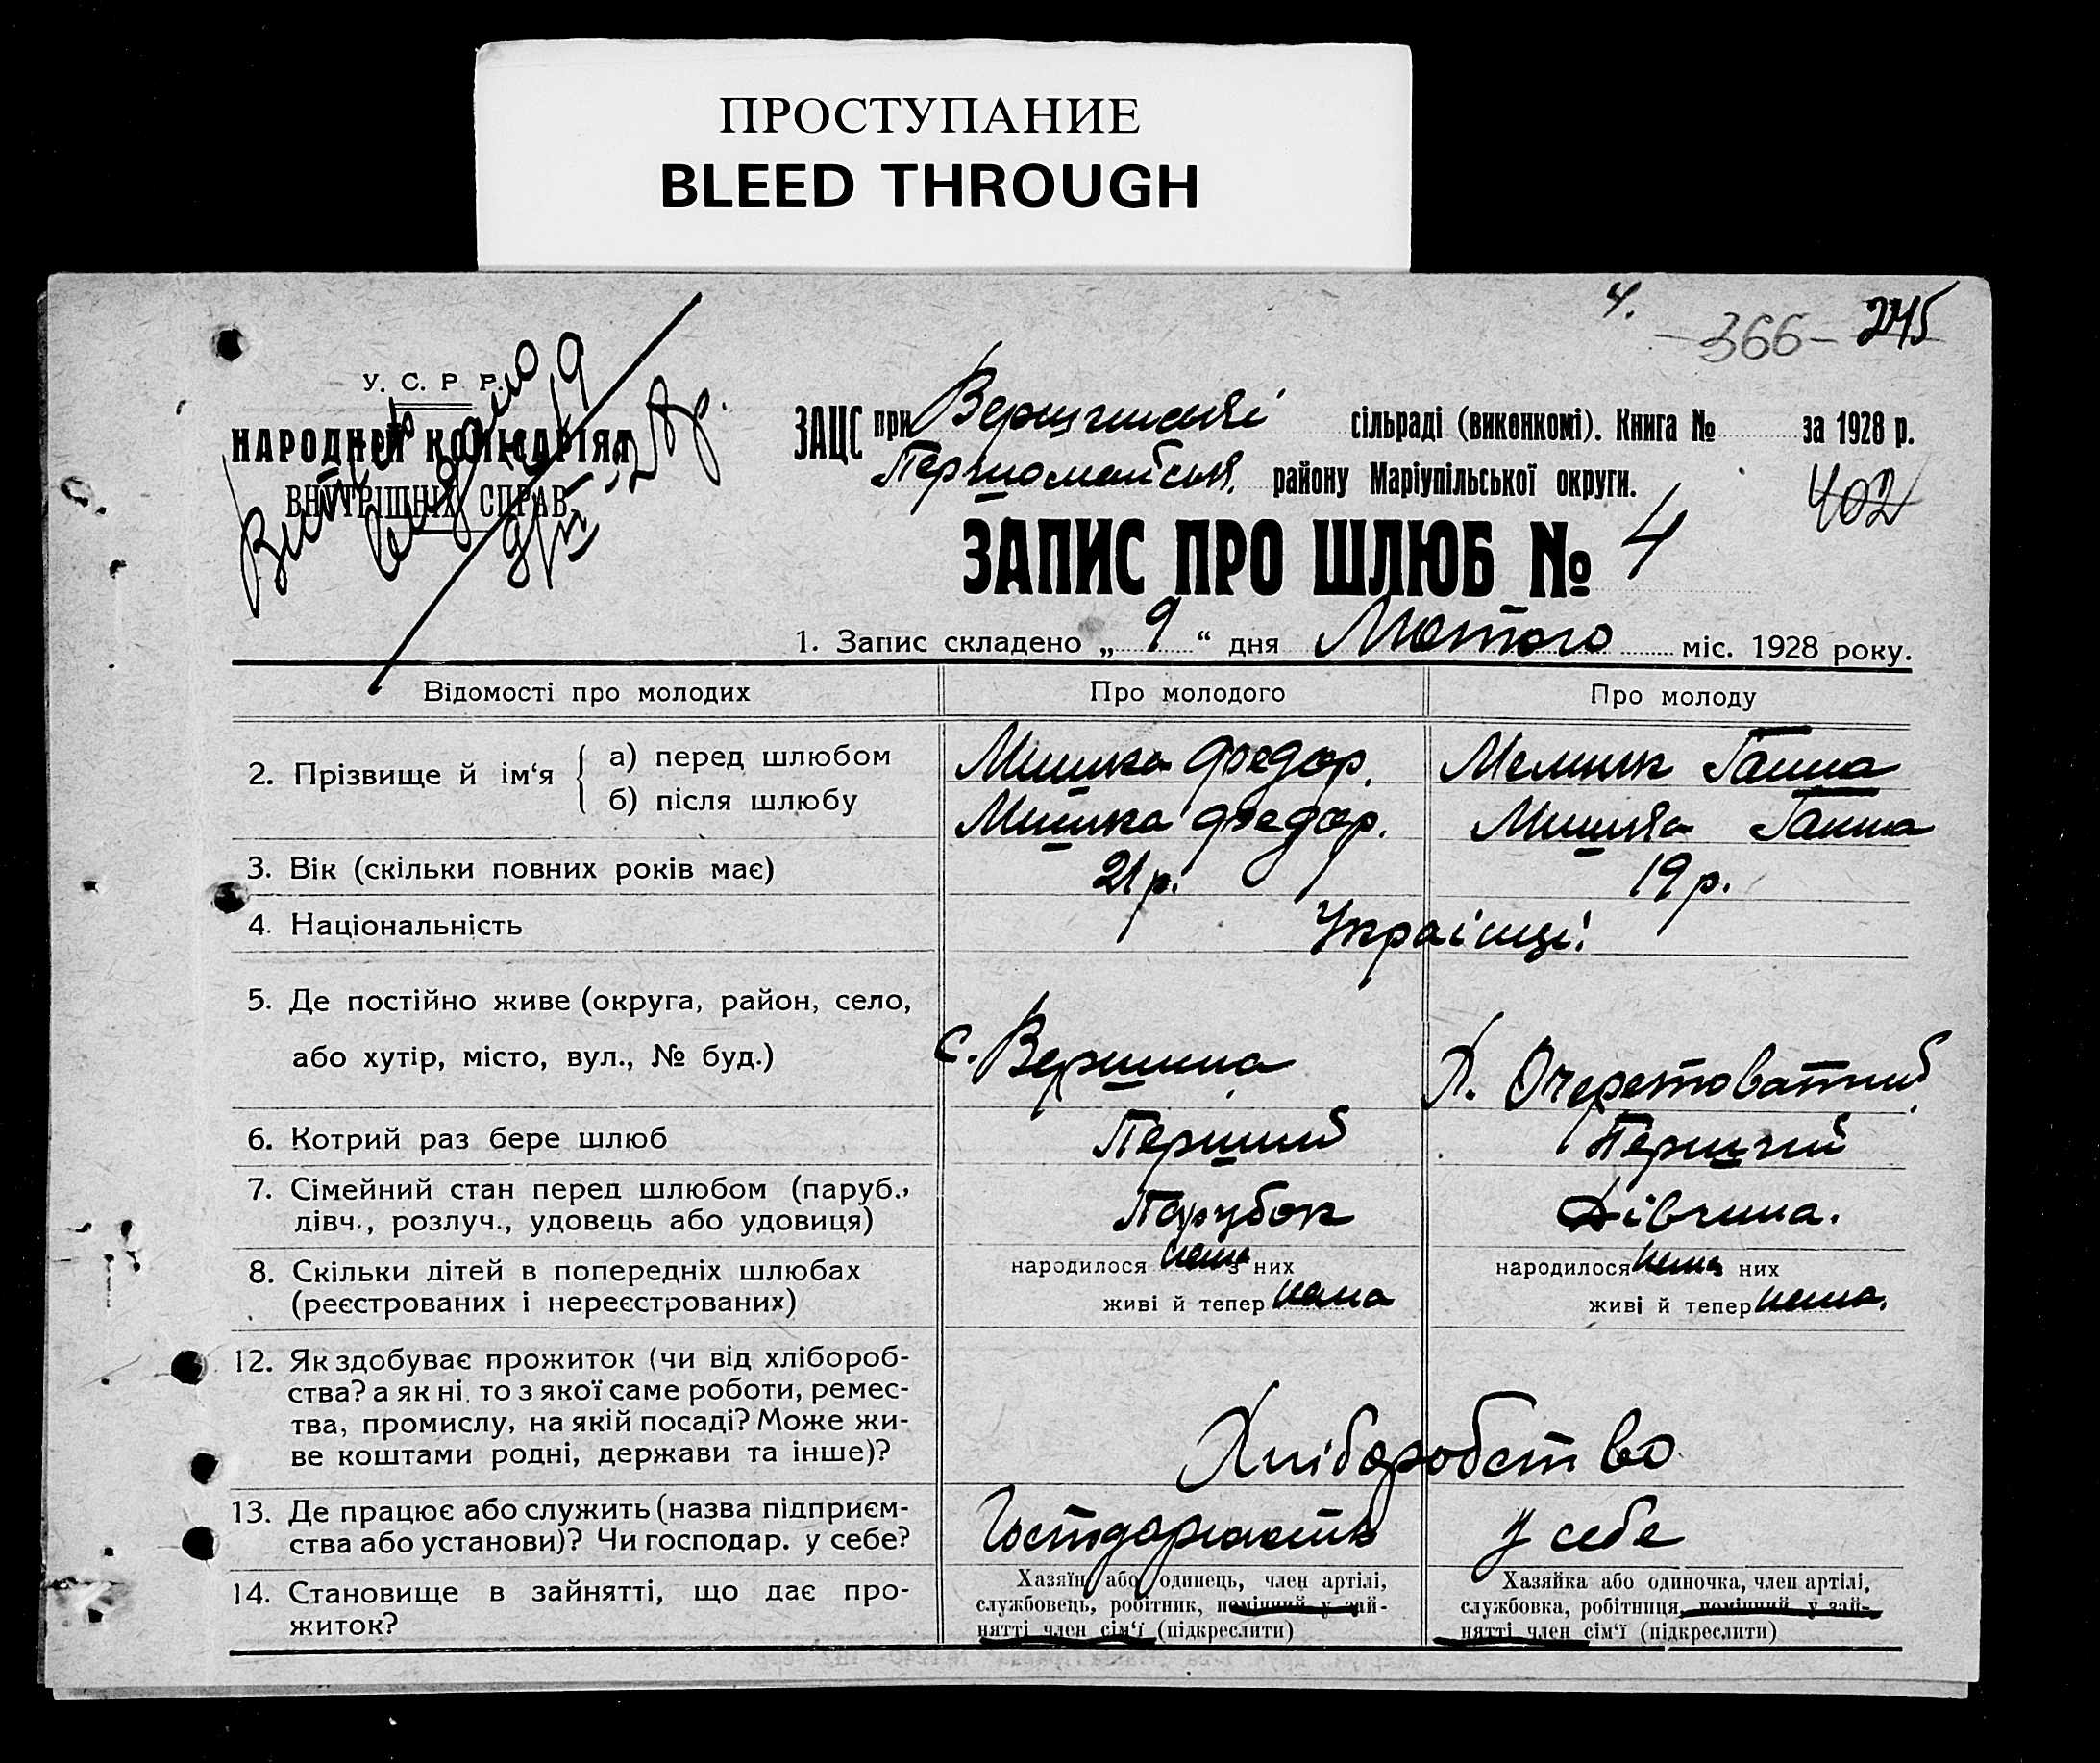 ПРОСТУПАНИЕ
BLEED THROUGH
4.
-366- 245
У. С. Р. Р.
НАРОДНІЙ КОМІСАРІЯТ
ВНУТРІШНІХ СПРАВ
ЗАЦС при сільраді (виконкомі). Книга № за 1928 р.
Першомайськ. району Маріупільської округи.
402
ЗАПИС ПРО ШЛЮБ № 4
1. Запис складено „ 9 “ дня Лютого міс. 1928 року.
Відомості про молодих Про молодого Про молоду
2. Прізвище й ім‘я а) перед шлюбом Мишка Федор. Мельник Ганна
б) після шлюбу Мишка Федор. Мишка Ганна
3. Вік (скільки повних років має) 21 р. 19 р.
4. Національність Українці
5. Де постійно живе (округа, район, село,
або хутір, місто, вул., № буд.) с. Вершина Х. Очеретоватий
6. Котрий раз бере шлюб Перший Перший
7. Сімейний стан перед шлюбом (паруб.,
дівч., розлуч., удовець або удовиця) Парубок Дівчина.
8. Скільки дітей в попередніх шлюбах народилося нема з них народилося нема з них
(реєстрованих і нереєстрованих) живі й тепер нема живі й тепер нема.
12. Як здобуває прожиток (чи від хлібороб-
ства? а як ні, то з якої саме роботи, ремес-
тва, промислу, на якій посаді? Може жи-
ве коштами родні, держави та інше)? Хліборобство
13. Де працює або служить (назва підприєм-
ства або установи)? Чи господар. у себе? Господарюють у себе
14. Становище в зайнятті, що дає про-
житок?
Хазяїн або одинець, член артілі,
службовець, робітник, помічний у зай-
нятті член сім‘ї (підкреслити)
Хазяйка або одиночка, член артілі,
службовка, робітниця, помічний у зай-
нятті член сім‘ї (підкреслити)